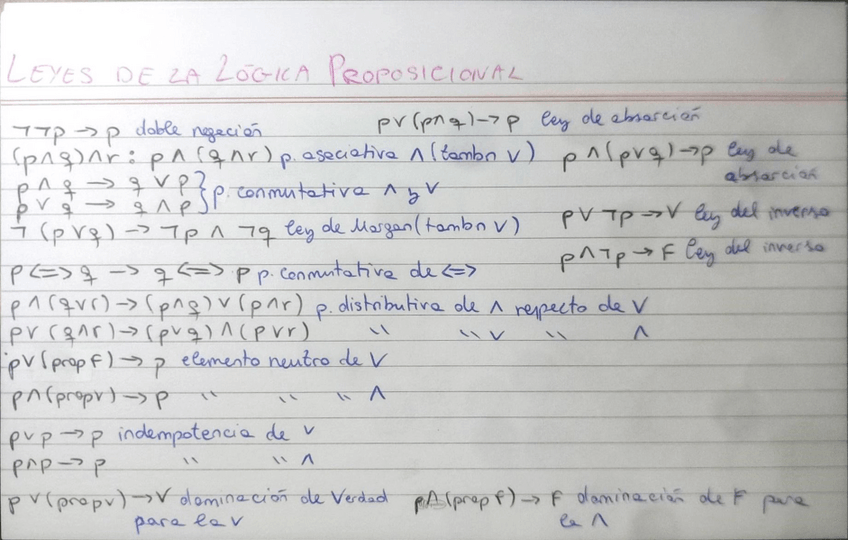 LEYES DE LA LÓGICA PROPOSICIONAL
¬¬p → p doble negación
p∨(p∧q)→p ley de absorción
(p∧q)∧r : p∧(q∧r) p. asociativa ∧ (tambn ∨)
p∧(p∨q)→p ley de absorción
p∧q → q∨p } p. conmutativa ∧ y ∨
p∨q → q∧p
p∨¬p→V ley del inverso
¬(p∨q)→ ¬p ∧ ¬q ley de Morgan (tambn ∨)
p∧¬p→F ley del inverso
p<=>q → q<=>p p. conmutativa de <=>
p∧(q∨r)→(p∧q)∨(p∧r) p. distributiva de ∧ respecto de ∨
p∨(q∧r)→(p∨q)∧(p∨r) " " ∨ " ∧
p∨(prop f)→ p elemento neutro de ∨
p∧(prop v)→p " " " ∧
p∨p → p indempotencia de ∨
p∧p → p " " ∧
p∨(prop v)→V dominación de Verdad
para la ∨
p∧(prop f)→ F dominación de F para
la ∧